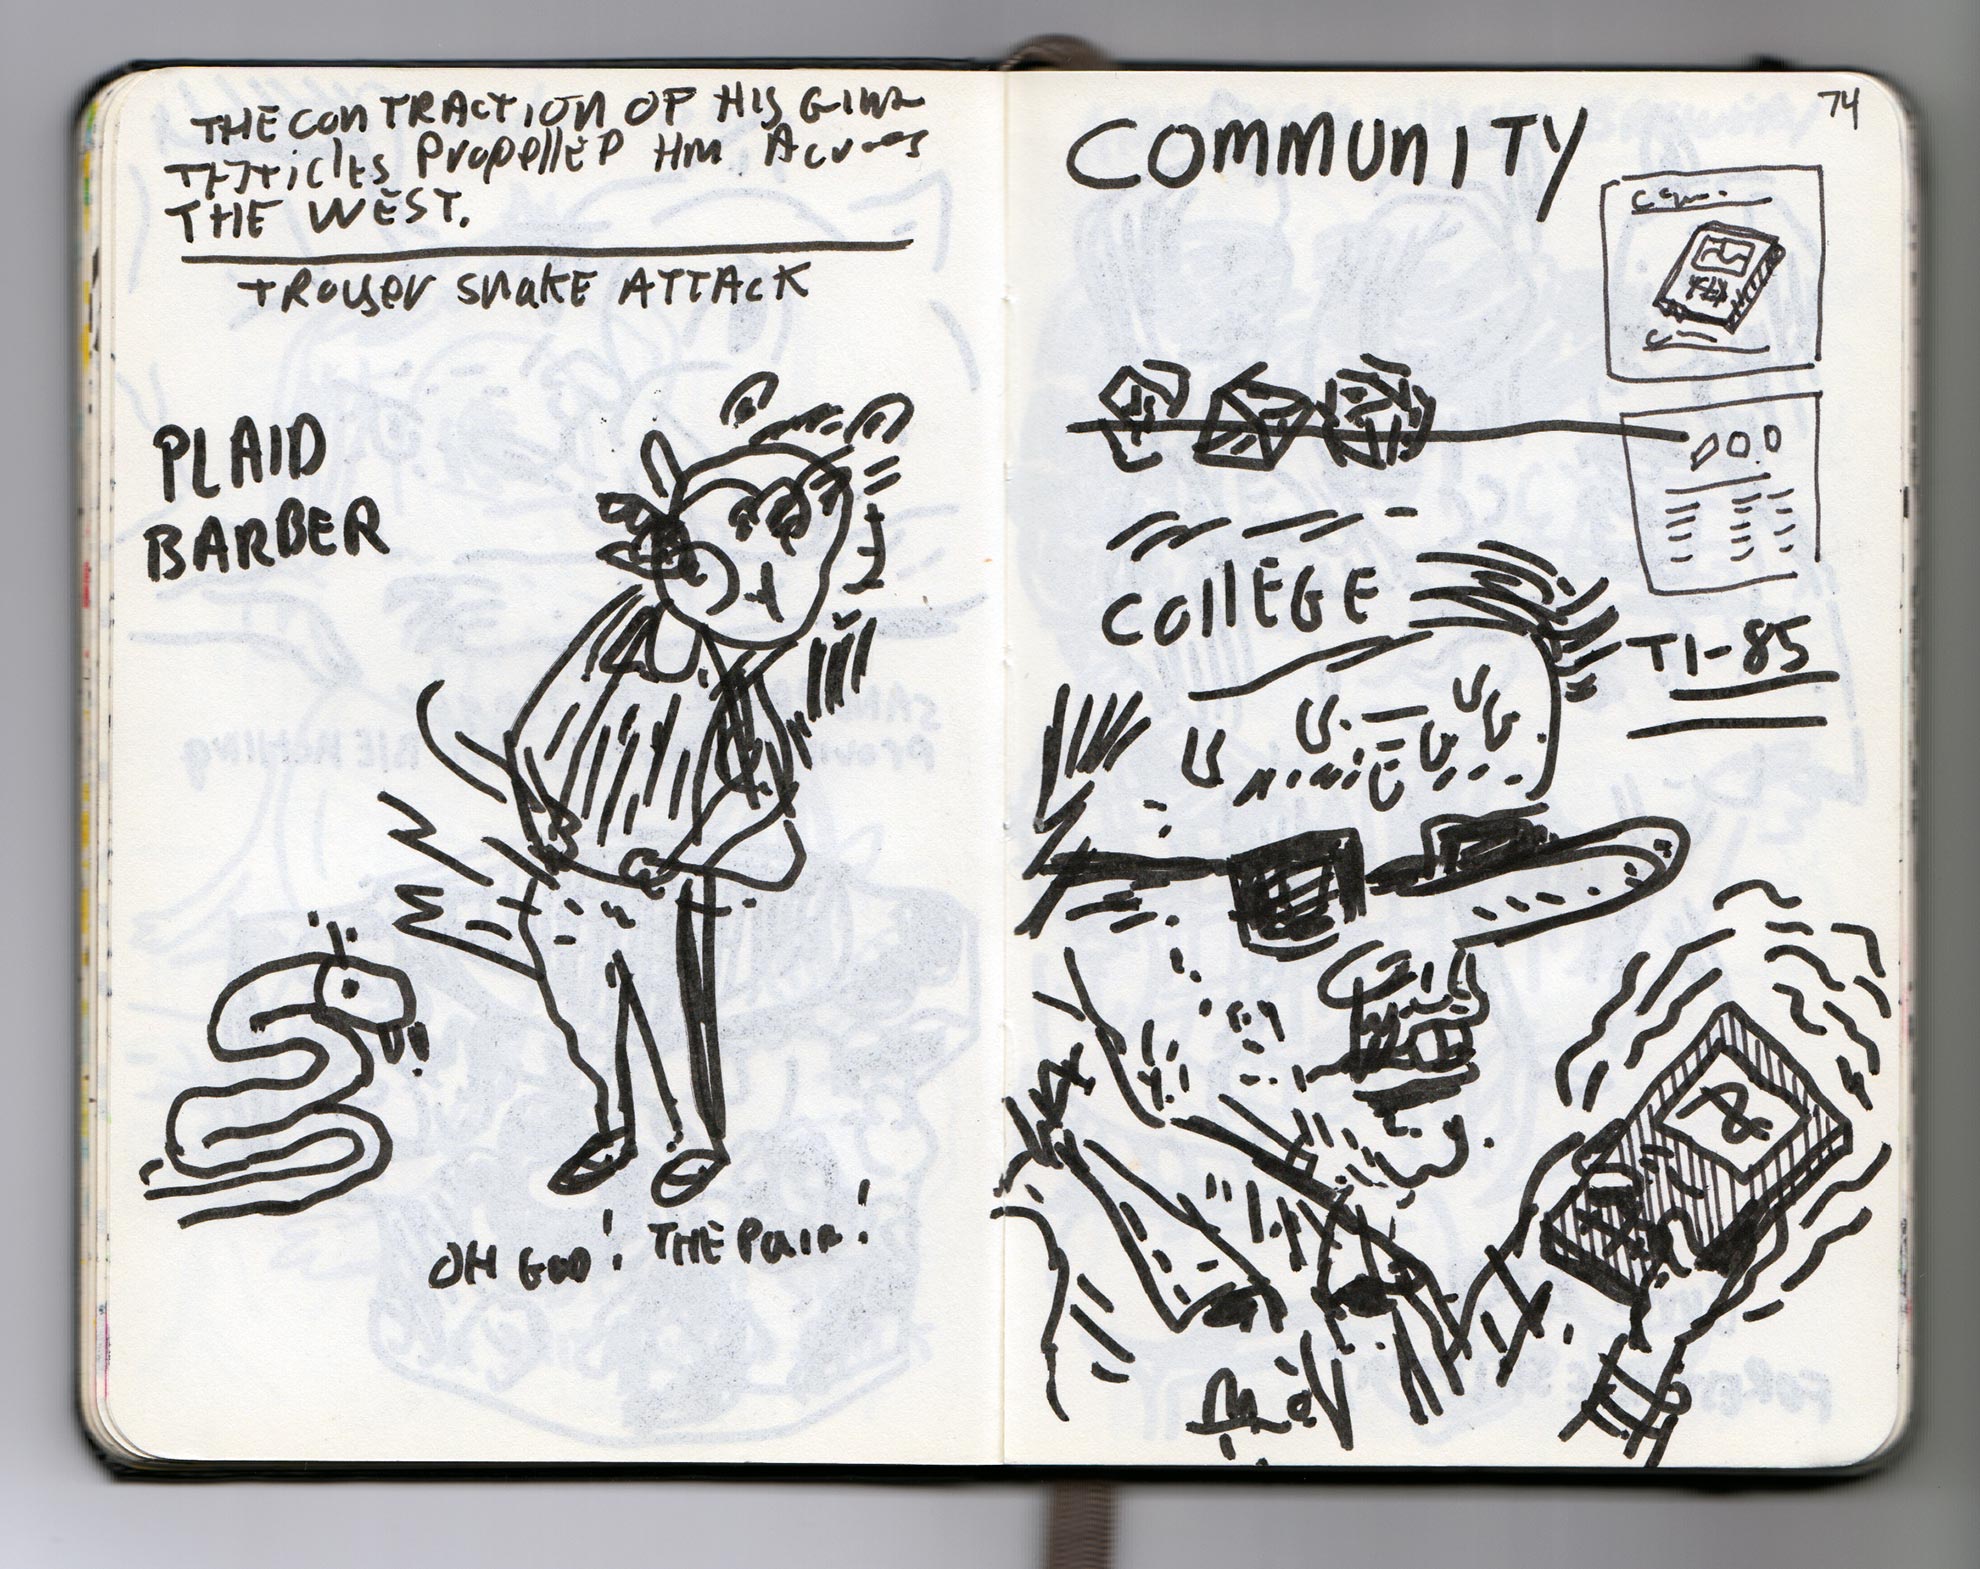 THE CONTRACTION OF HIS GIANT
TESTICLES PROPELLED HIM ACROSS
THE WEST.
TROUSER SNAKE ATTACK
PLAID
BARBER
OH GOD! THE PAIN!
74
COMMUNITY
COLLEGE
TI-85